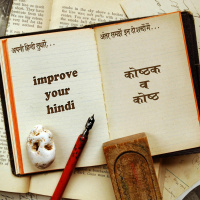 अपनी हिन्दी सुधारें...
improve
your
hindi
अंतर समझें इन शब्दों में...
कोष्ठक
व
कोष्ठ